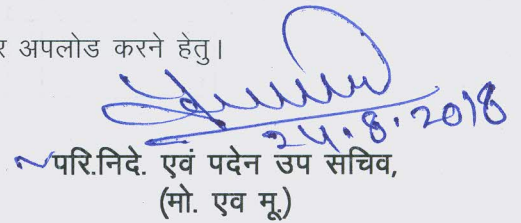 र अपलोड करने हेतु।
24.8.2018
परि.निदे. एवं पदेन उप सचिव,
(मो. एव मू.)